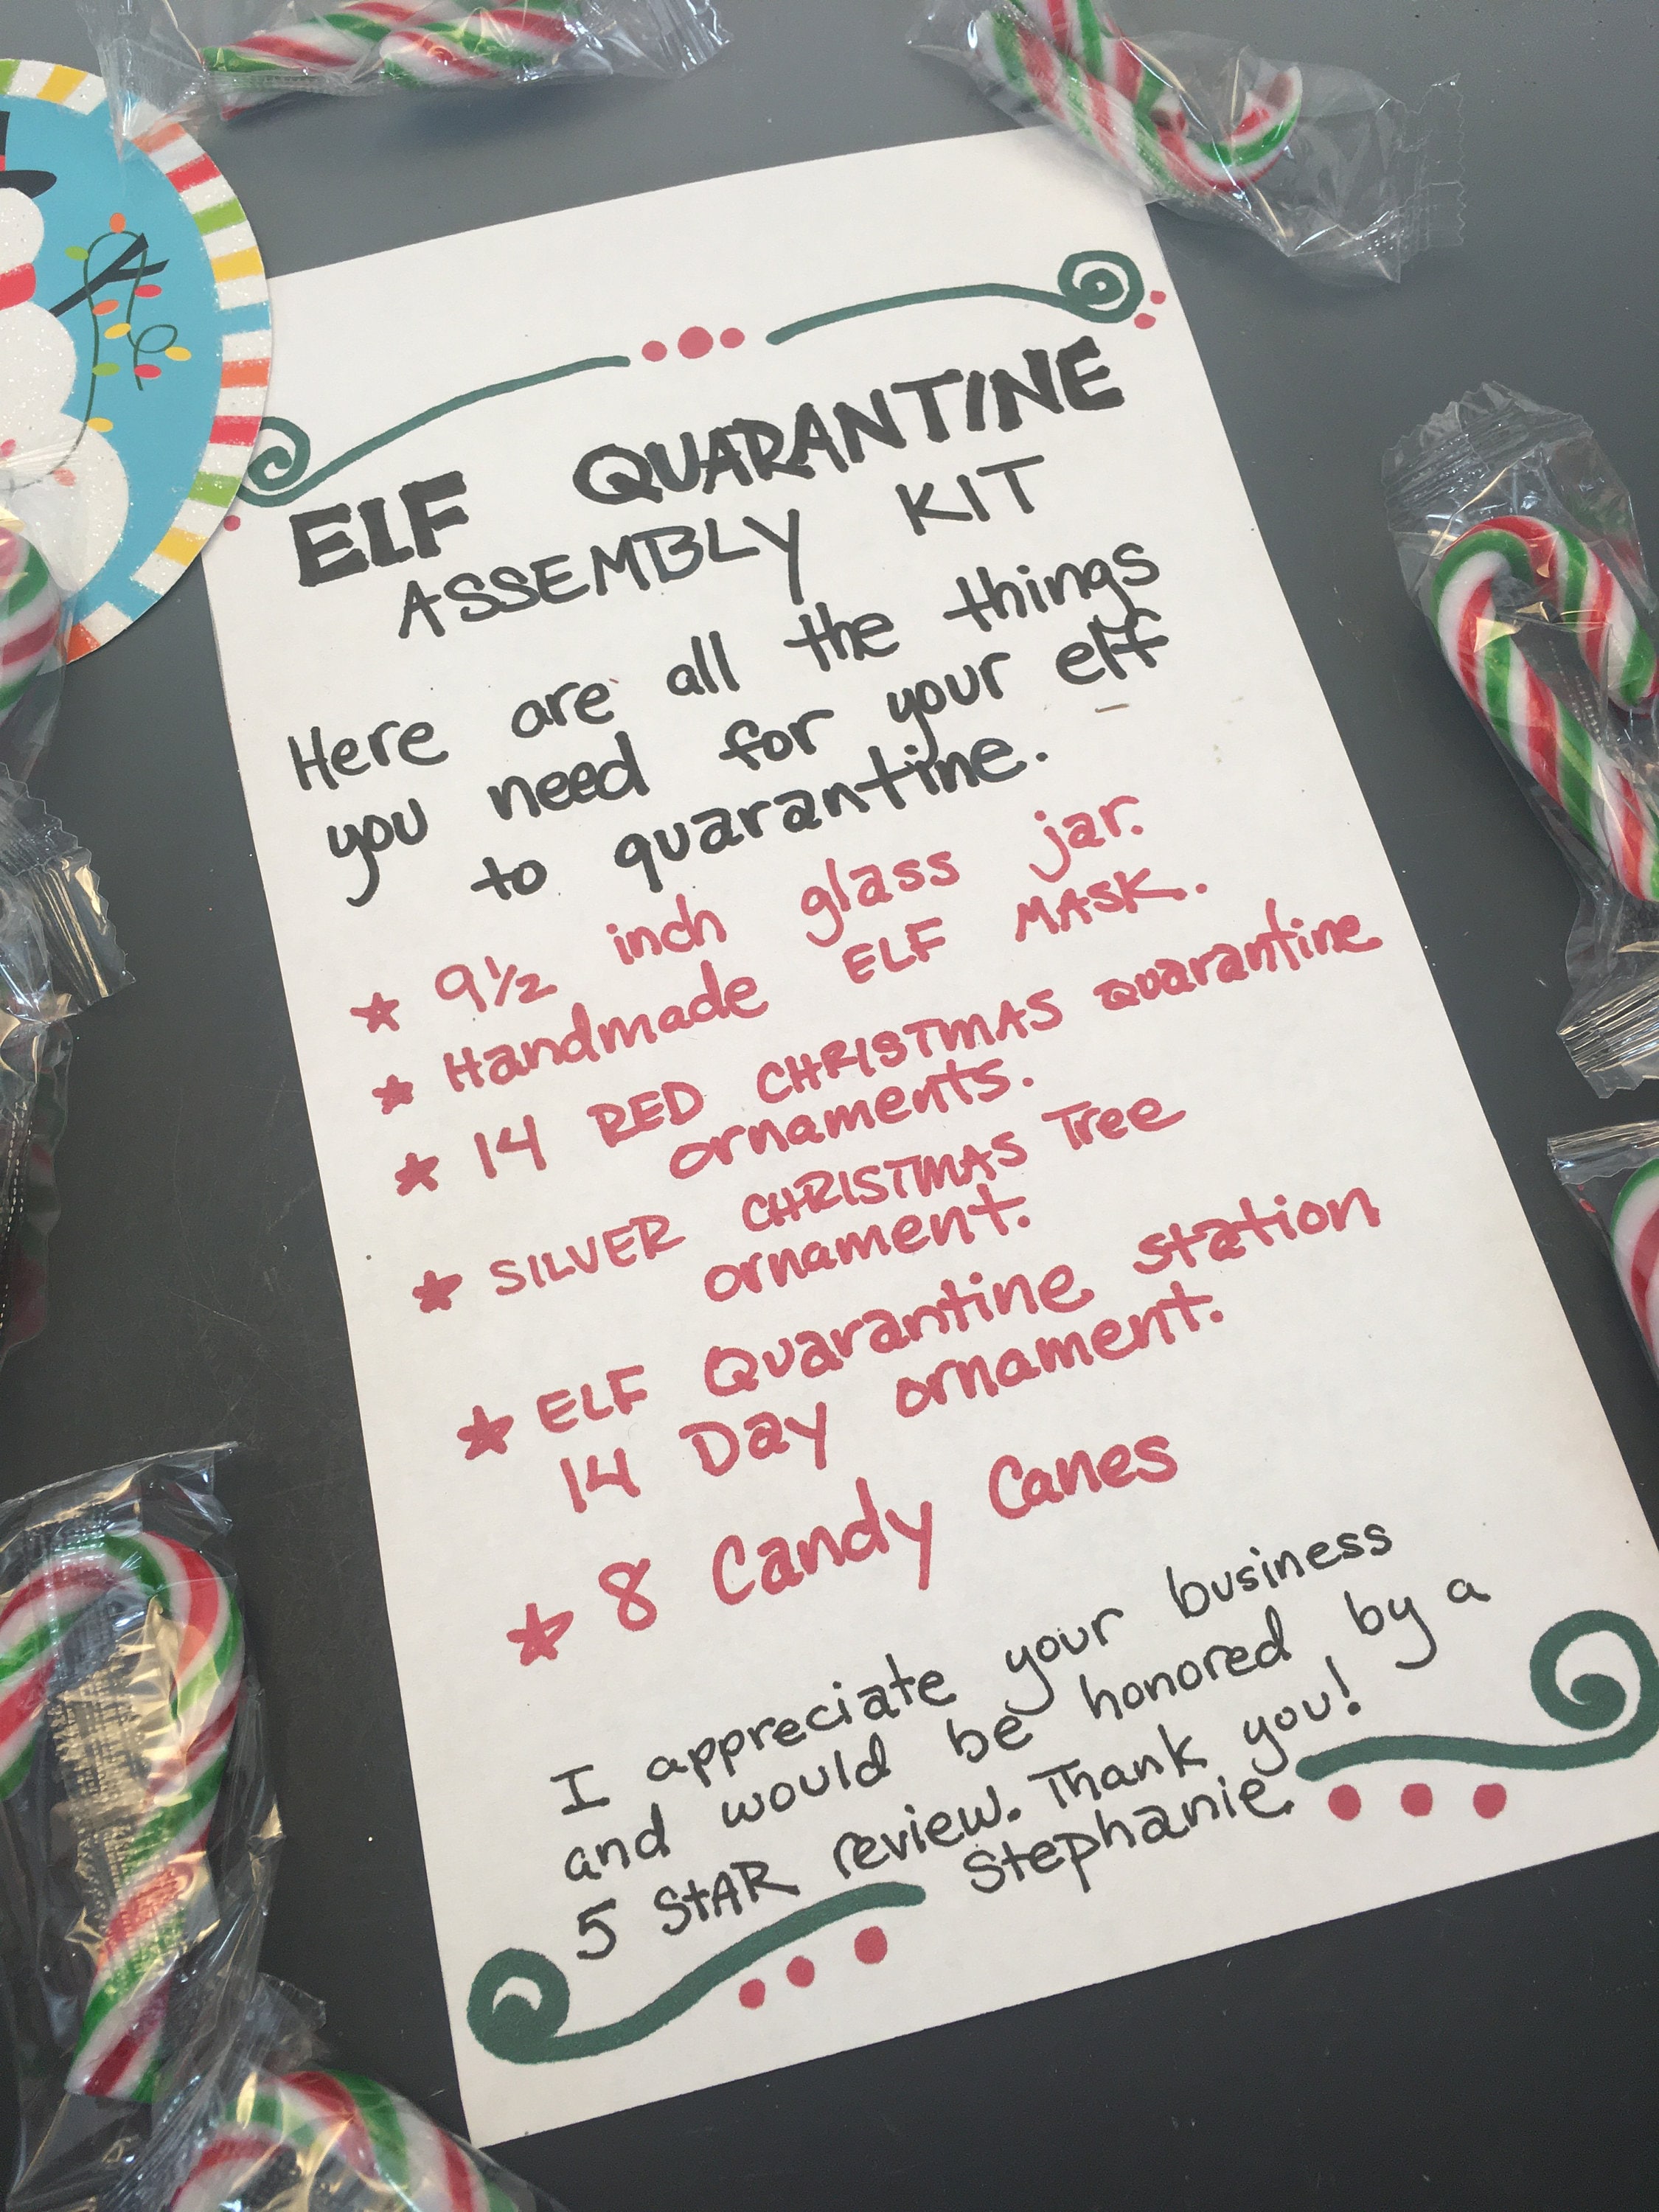 ELF QUARANTINE
ASSEMBLY KIT
Here are all the things
you need for your elf
to quarantine.
★ 9½ inch glass jar.
★ Handmade ELF MASK.
★ 14 RED CHRISTMAS Quarantine
ornaments.
★ SILVER CHRISTMAS Tree
ornament.
★ ELF Quarantine station
14 Day ornament.
★ 8 Candy Canes
I appreciate your business
and would be honored by a
5 StAR review. Thank you!
Stephanie